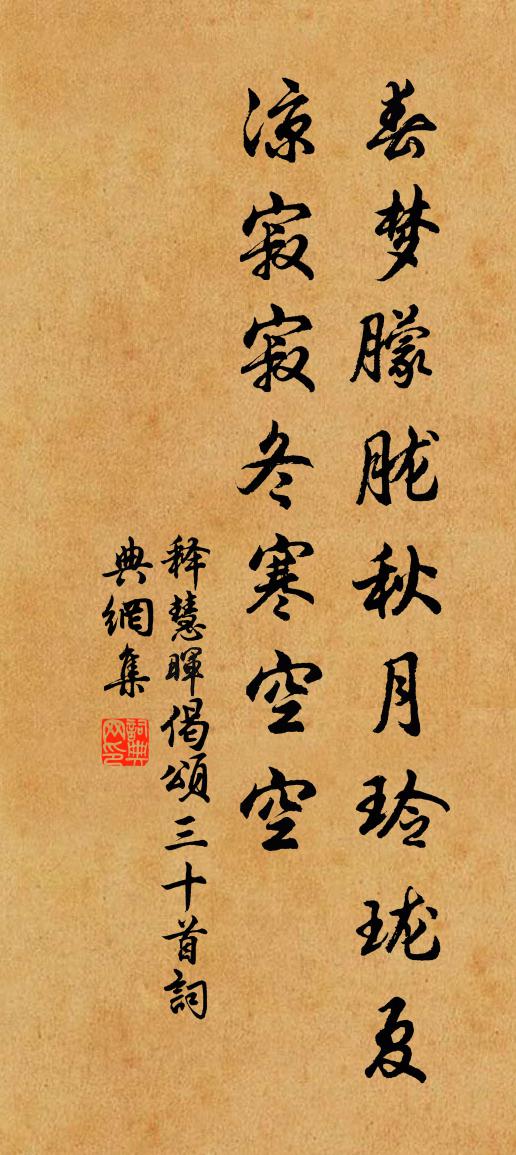 春梦朦胧秋月玲珑夏
凉寂寂冬寒空空
释慧暉偈頌三十首詞
典網集
詞典网印